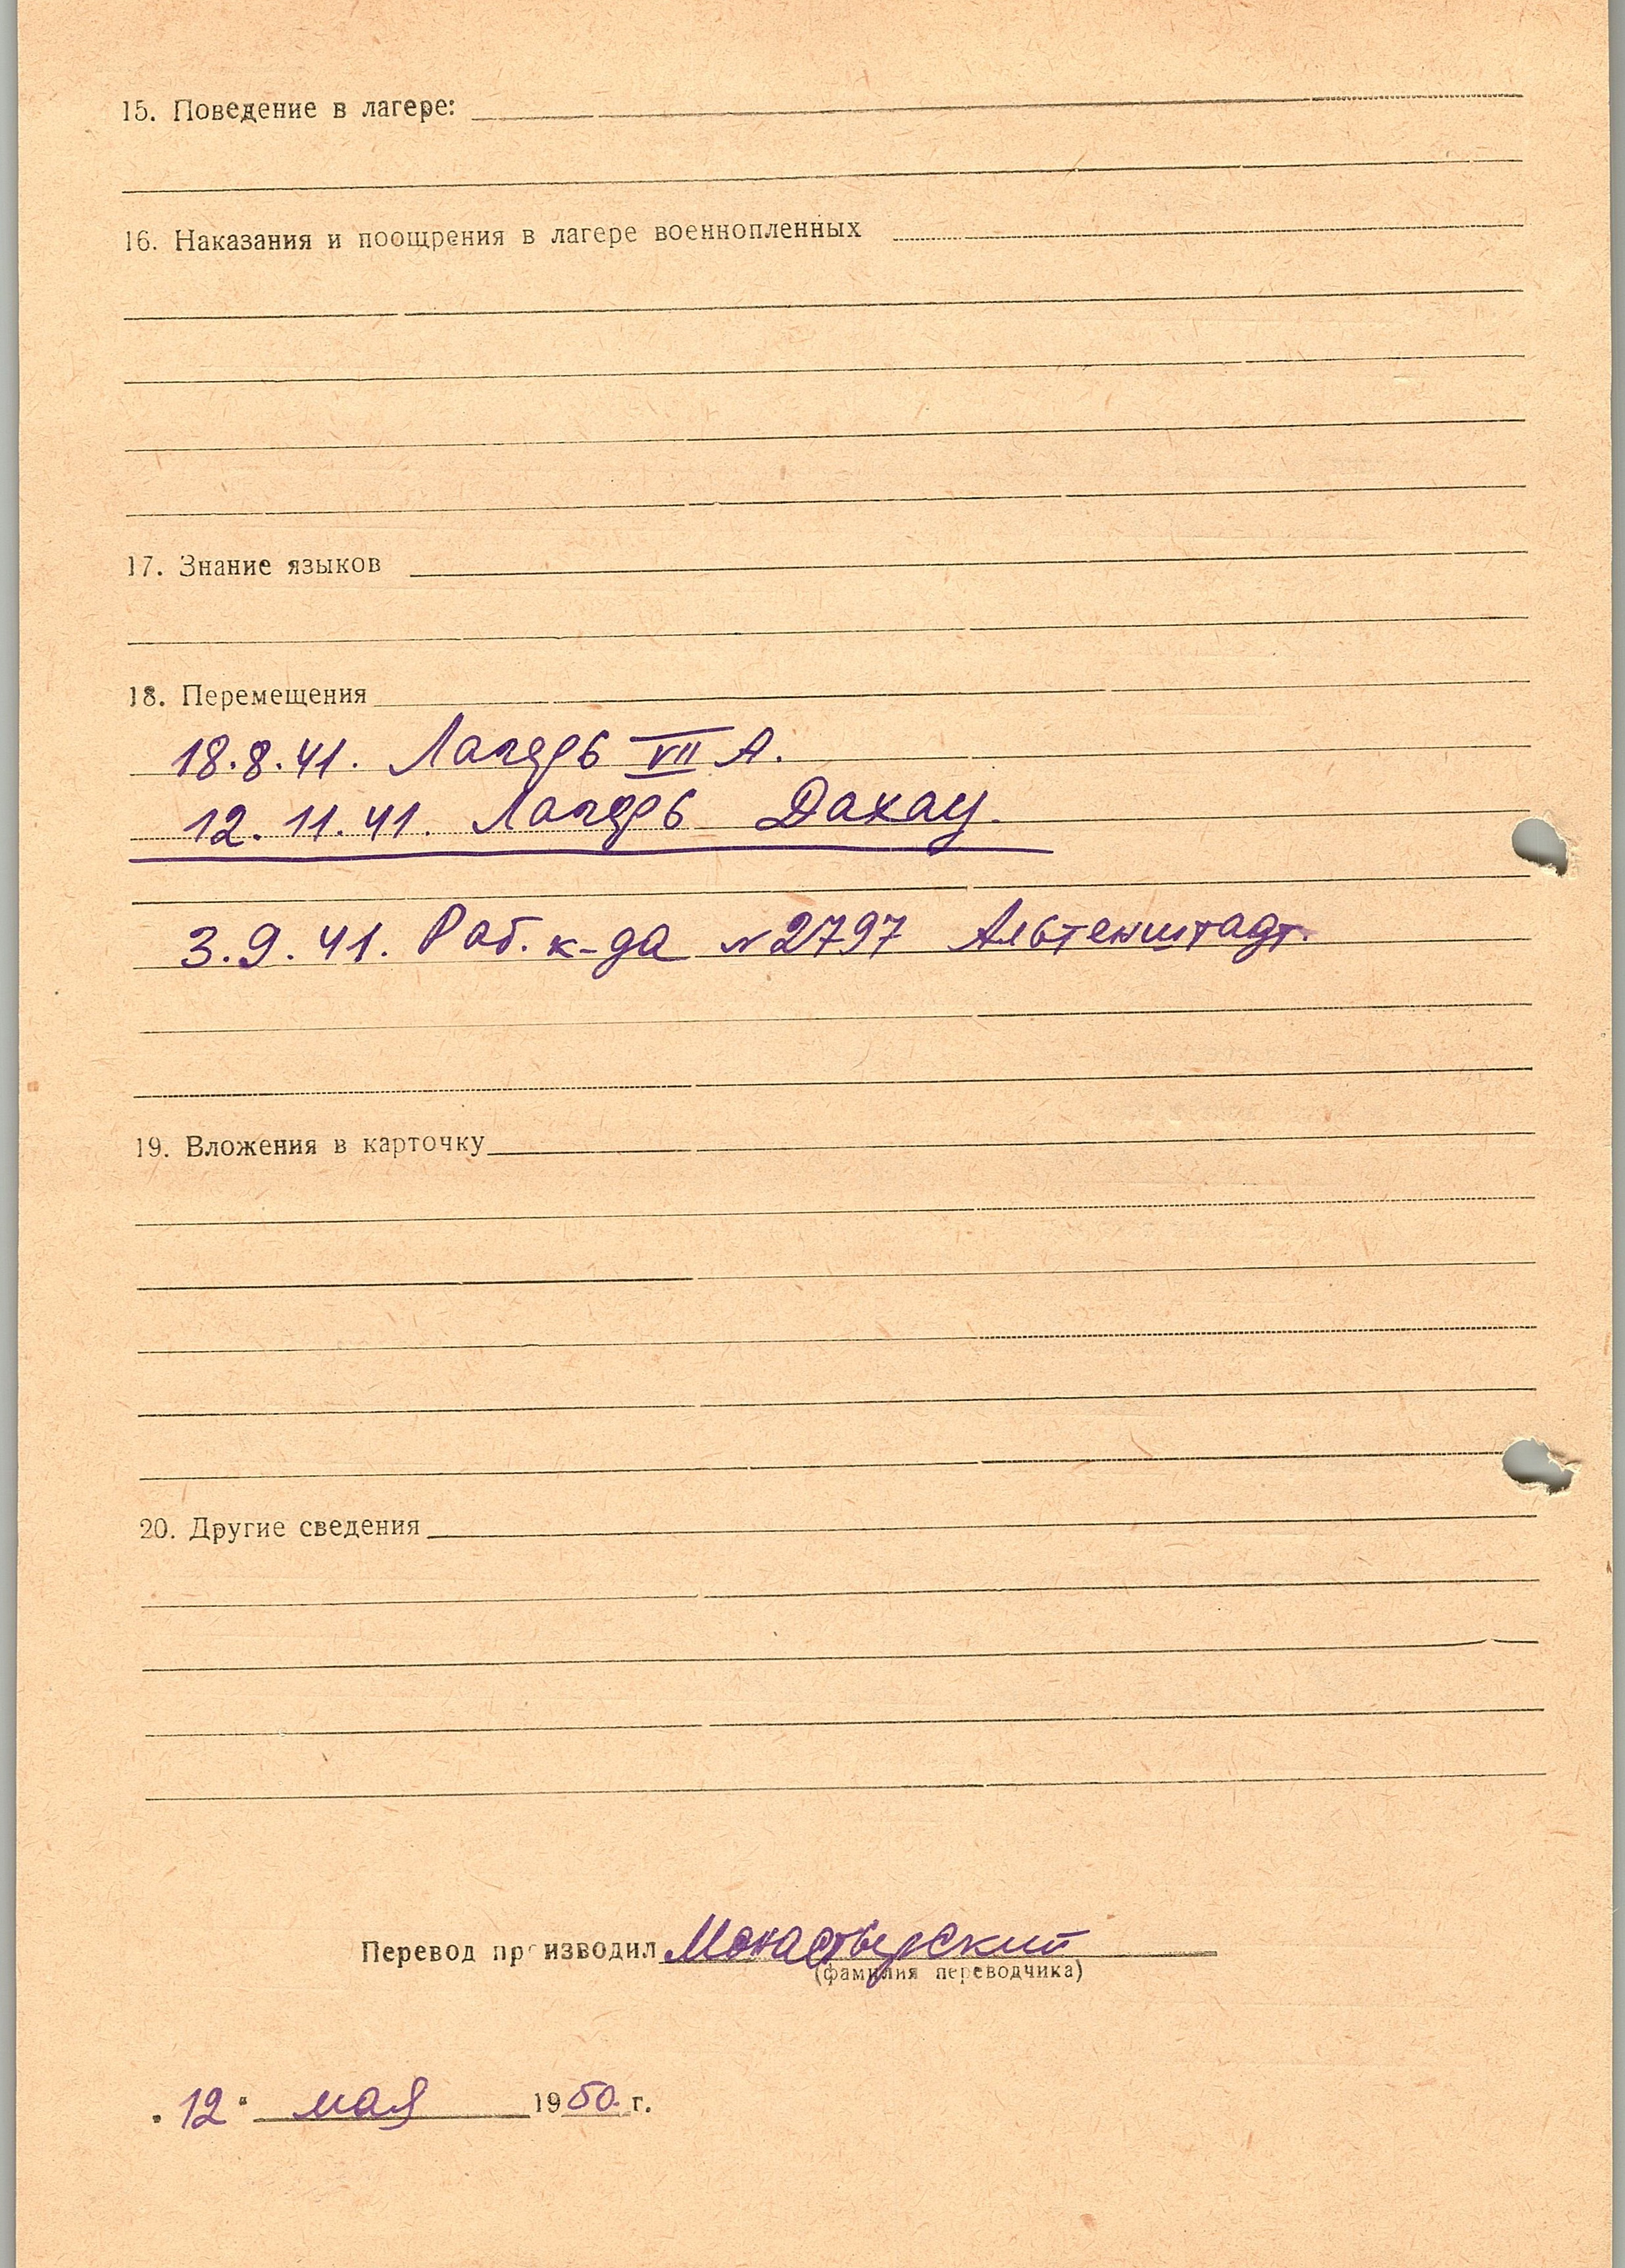 15. Поведение в лагере:
16. Наказания и поощрения в лагере военнопленных
17. Знание языков
18. Перемещения
18.8.41. Лагерь VII А.
12.11.41. Лагерь Дахау.
3.9.41. Раб. к-да № 2797 Альтенштадт.
19. Вложения в карточку
20. Другие сведения
Перевод производил Монастырский
(фамилия переводчика)
"12" мая 1950 г.